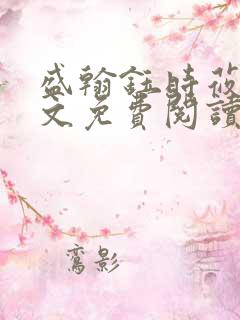 盛翰鈺時莜
文免費閱讀
鸞影